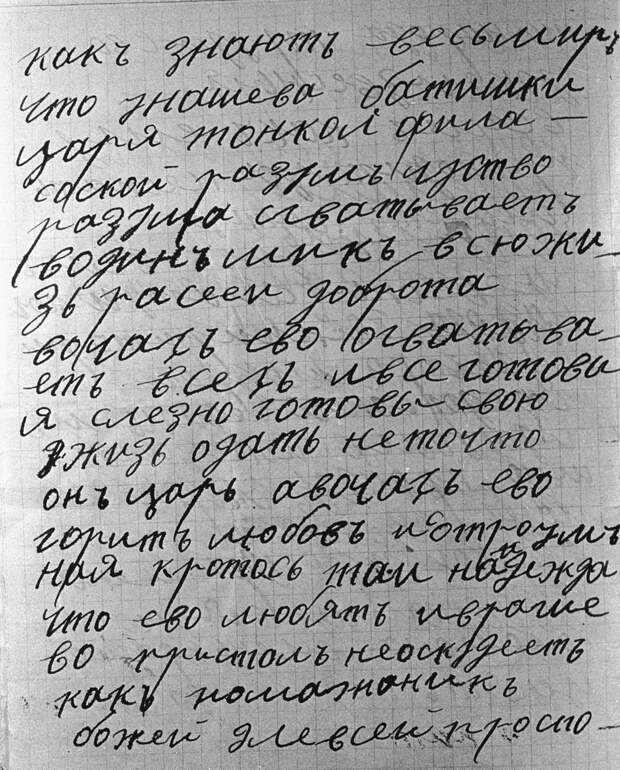 какъ знаютъ весьмиръ
что унашева батишки
царя тонкол фила—
софской разумъ чуство
разума огватываетъ
водинъ микъ всюжи—
зь расеи доброта
вочахъ ево огватыва—
етъ всехъ ивсе готовы
я слезно готовы свою
жизь одать неточто
онъ царь авочахъ ево
горитъ любовъ иотроумъ
ная кротось таи надежда
что ево любятъ ивраги
во пристолъ неоскудеетъ
какъ помазоникъ
божей длевсей проспо—